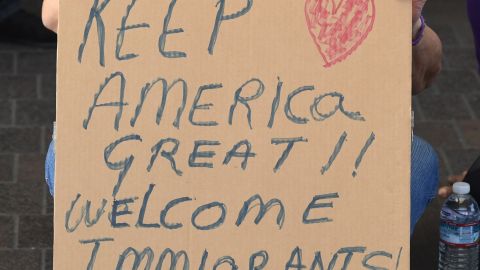 KEEP
AMERICA
GREAT!!
WELCOME
IMMIGRANTS!